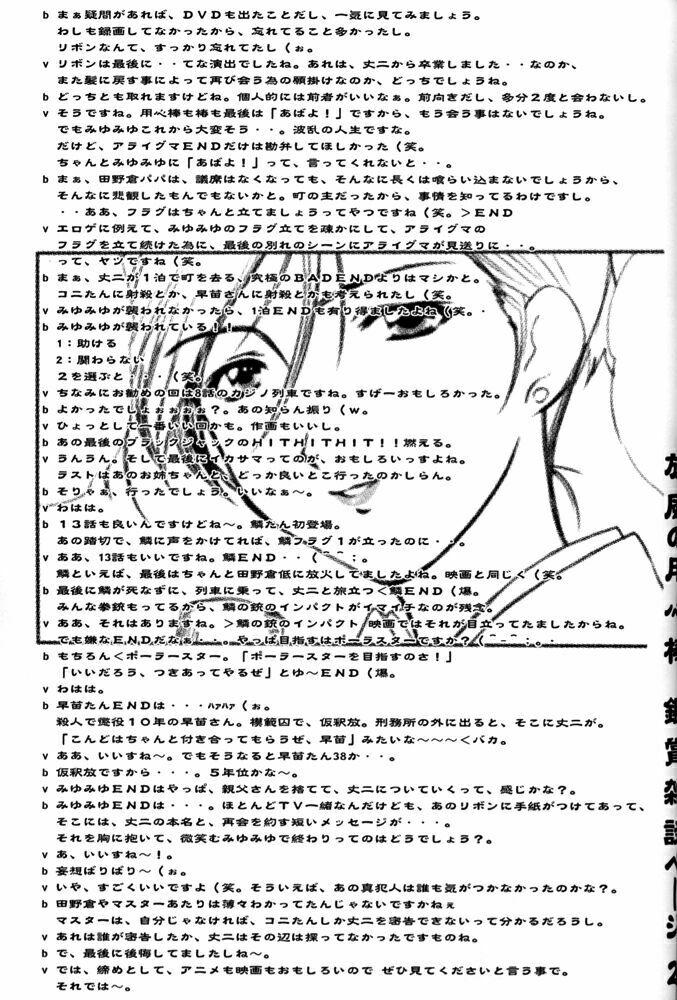 b まぁ疑問があれば、ＤＶＤも出たことだし、一気に見てみましょう。
わしも録画してなかったから、忘れてること多かったし。
リボンなんて、すっかり忘れてたし（ぉ。
v リボンは最後に・・てな演出でしたね。あれは、丈二から卒業しました・・なのか、
また髪に戻す事によって再び会う為の願掛けなのか、どっちでしょうね。
b どっちとも取れますけどね。個人的には前者がいいなぁ。前向きだし、多分２度と会わないし。
v そうですね。用心棒も椿も最後は「あばよ！」ですから、もう会う事はないでしょうね。
でもみゆみゆこれから大変そう・・。波乱の人生ですな。
だけど、アライグマＥＮＤだけは勘弁してほしかった（笑。
ちゃんとみゆみゆに「あばよ！」って、言ってくれないと・・。
b まぁ、田野倉パパは、議席はなくなっても、そんなに長くは喰らい込まないでしょうから、
そんなに悲観したもんでもないかと。町の主だったから、事情を知ってるわけですし。
・・ああ、フラグはちゃんと立てましょうってやつですね（笑。＞ＥＮＤ
v エロゲに例えて、みゆみゆのフラグ立てを疎かにして、アライグマの
フラグを立て続けた為に、最後の別れのシーンにアライグマが見送りに・・。
って、ヤツですね（笑。
b まぁ、丈二が１泊で町を去る、究極のＢＡＤＥＮＤよりはマシかと。
コニたんに射殺とか、早苗さんに射殺とかも考えられたし（笑。
v みゆみゆが襲われなかったら、１泊ＥＮＤも有り得ましたよね（笑。・
b みゆみゆが襲われている！！
１：助ける
２：関わらない
２を選ぶと・・・（笑。
v ちなみにお勧めの回は8話のカジノ列車ですね。すげーおもしろかった。
b よかったでしょぉぉぉぉ？。あの知らん振り（ｗ。
v ひょっとして一番いい回かも。作画もいいし。
b あの最後のブラックジャックのＨＩＴＨＩＴＨＩＴ！！燃える。
v うんうん。そして最後にイカサマってのが、おもしろいっすよね。
ラストはあのお姉ちゃんと、どっか良いとこ行ったのかしらん。
b そりゃぁ、行ったでしょう。いいなぁ～。
v わはは。
b １３話も良いんですけどね～。鱗たん初登場。
あの踏切で、鱗に声をかけてれば、鱗フラグ１が立ったのに・・。
v ああ、13話もいいですね。鱗ＥＮＤ・・（⌒⌒；。
鱗といえば、最後はちゃんと田野倉低に放火してましたよね。映画と同じく（笑。
b 最後に鱗が死なずに、列車に乗って、丈二と旅立つ＜鱗ＥＮＤ（爆。
みんな拳銃もってるから、鱗の銃のインパクトがイマイチなのが残念。
v ああ、それはありますね。＞鱗の銃のインパクト 映画ではそれが目立ってたましたからね。
でも嫌なＥＮＤだなぁ・・。やっぱ目指すはポーラスターですか？（⌒-⌒；。
b もちろん＜ポーラースター。「ポーラースターを目指すのさ！」
「いいだろう、つきあってやるぜ」とゆ～ＥＮＤ（爆。
v わはは。
b 早苗たんＥＮＤは・・・ﾊｧﾊｧ（ぉ。
殺人で懲役１０年の早苗さん。模範囚で、仮釈放。刑務所の外に出ると、そこに丈二が。
「こんどはちゃんと付き合ってもらうぜ、早苗」みたいな～～～＜バカ。
v ああ、いいすね～。でもそうなると早苗たん38か・・。
b 仮釈放ですから・・・。５年位かな～。
v みゆみゆＥＮＤはやっぱ、親父さんを捨てて、丈二についていくって、感じかな？。
b みゆみゆＥＮＤは・・・。ほとんどＴＶ一緒なんだけども、あのリボンに手紙がつけてあって、
そこには、丈二の本名と、再会を約す短いメッセージが・・・。
それを胸に抱いて、微笑むみゆみゆで終わりってのはどうでしょう？。
v あ、いいすね～！。
b 妄想ばりばり～（ぉ。
v いや、すごくいいですよ（笑。そういえば、あの真犯人は誰も気がつかなかったのかな？。
b 田野倉やマスターあたりは薄々わかってたんじゃないですかねぇ
マスターは、自分じゃなければ、コニたんしか丈二を密告できないって分かるだろうし。
v あれは誰が密告したか、丈二はその辺は探ってなかったですものね。
b で、最後に後悔してましたしね～。
v では、締めとして、アニメも映画もおもしろいので ぜひ見てくださいと言う事で。
それでは～。
旅風の用心棒 鑑賞雑話ページ２